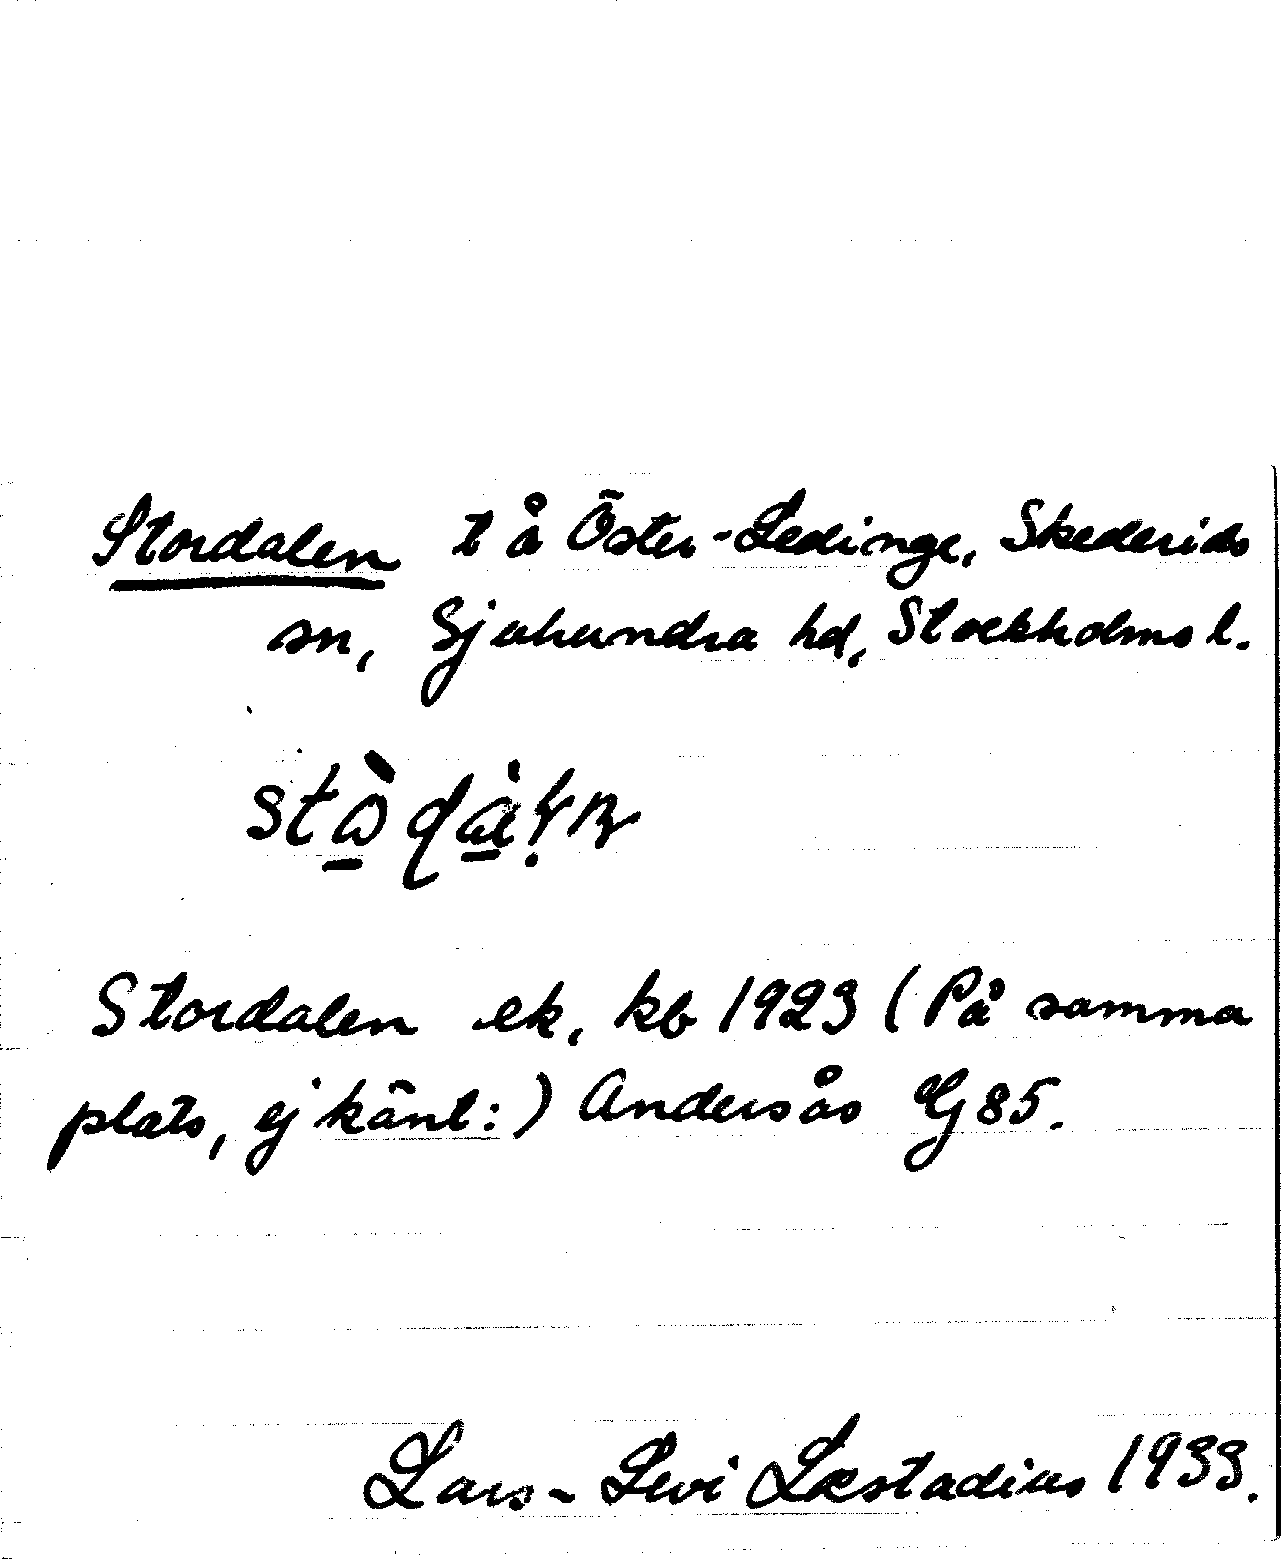 Stordalen t å Öster-Ledinge, Skederids
sn, Sjuhundra hd, Stockholms l.
Stordalen ek, kb 1923 (På samma
plats, ej känt:) Andersås G 85.
Lars-Levi Læstadius 1933.